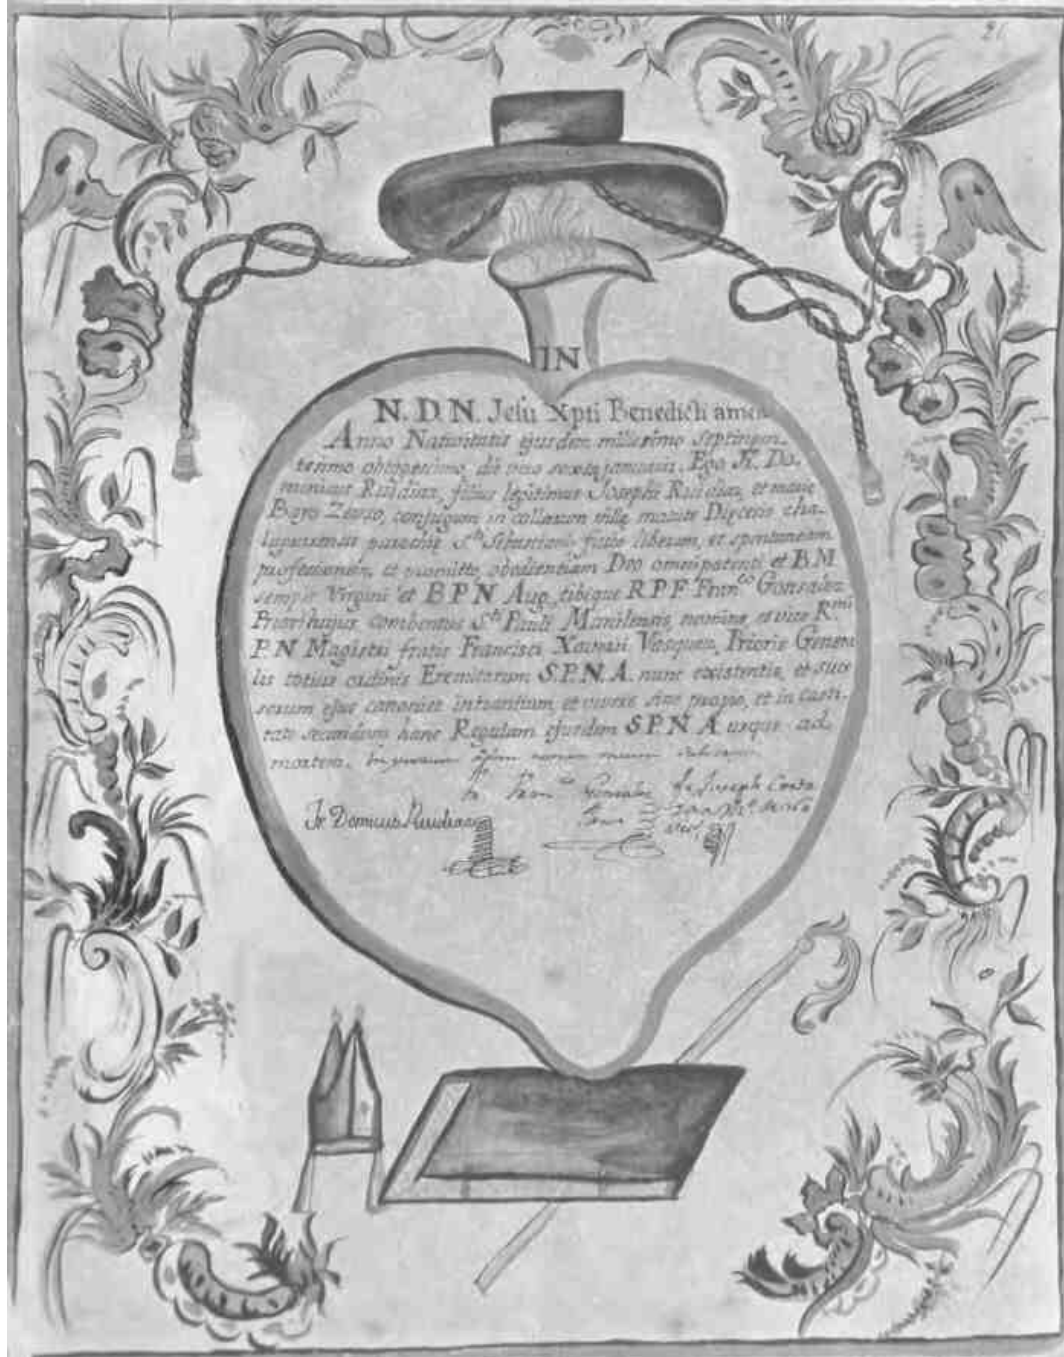 IN
N. D. N. Jesu Xpti Benedicti amen
Anno Nativitatis ejusdem millesimo septingen-
tesimo octogesimo, die vero sexta januarii. Ego Fr. Do-
minicus Ruidiaz, filius legitimus Josephi Ruidiaz, et marie
conjugum in villę Dięcesis
parochię Sti. Sebastiani facio liberam, et spontaneam
professionem, et promitto obedientiam Deo omnipotenti et B. M
semper Virgini et B P N Aug., tibique R P F Franco Gonzalez
Priori hujus combentus Sti Pauli Manilensis, nomine, et vice Rmi
P. N Magistri fratis Francisci Xaverii Vasquez, Prioris Genera
lis totius ordinis Eremitarum S. P. N. A. nunc existentis, et suc
sorum ejus canonice intrantium, et vivere sine propio, et in casti-
tate secundum hanc Regulam ejusdem S P N A usque ad
mortem. nomen meum
Fr Franco Gonzalez Fr Joseph
Fr Domicus Ruidiaz